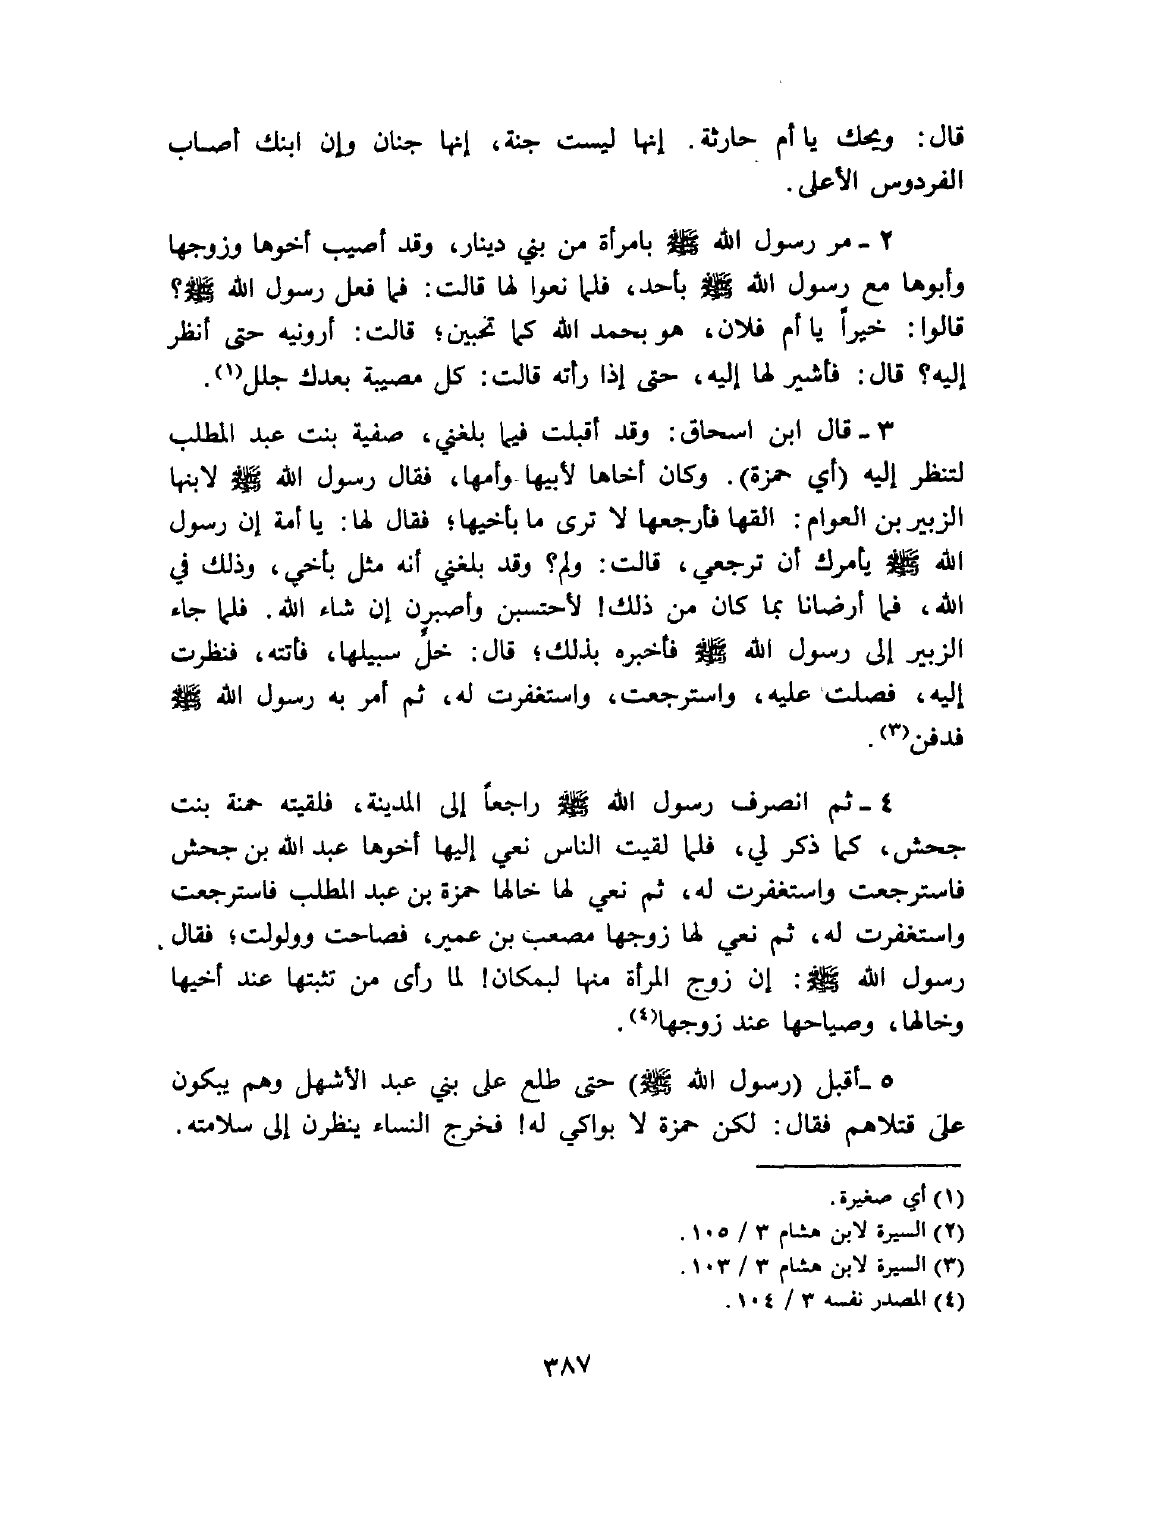 قال : ويحك يا أم حارثة . إنها ليست جنة ، إنها جنان وإن ابنك أصاب
الفردوس الأعلى .
٢ ـ مر رسول الله ﷺ بامرأة من بني دينار ، وقد أصيب أخوها وزوجها
وأبوها مع رسول الله ﷺ بأحد ، فلما نعوا لها قالت : فما فعل رسول الله ﷺ ؟
قالوا : خيراً يا أم فلان ، هو بحمد الله كما تحبين ؛ قالت : أرونيه حتى أنظر
إليه ؟ قال : فأشير لها إليه ، حتى إذا رأته قالت : كل مصيبة بعدك جلل(١) .
٣ ـ قال ابن اسحاق : وقد أقبلت فيما بلغني ، صفية بنت عبد المطلب
لتنظر إليه (أي حمزة) . وكان أخاها لأبيها وأمها ، فقال رسول الله ﷺ لابنها
الزبير بن العوام : القها فأرجعها لا ترى ما بأخيها ؛ فقال لها : يا أمة إن رسول
الله ﷺ يأمرك أن ترجعي ، قالت : ولم ؟ وقد بلغني أنه مثل بأخي ، وذلك في
الله ، فما أرضانا بما كان من ذلك ! لأحتسبن وأصبرن إن شاء الله . فلما جاء
الزبير إلى رسول الله ﷺ فأخبره بذلك ؛ قال : خلِّ سبيلها ، فأتته ، فنظرت
إليه ، فصلت عليه ، واسترجعت ، واستغفرت له ، ثم أمر به رسول الله ﷺ
فدفن(٣) .
٤ ـ ثم انصرف رسول الله ﷺ راجعاً إلى المدينة ، فلقيته حمنة بنت
جحش ، كما ذكر لي ، فلما لقيت الناس نعي إليها أخوها عبد الله بن جحش
فاسترجعت واستغفرت له ، ثم نعي لها خالها حمزة بن عبد المطلب فاسترجعت
واستغفرت له ، ثم نعي لها زوجها مصعب بن عمير ، فصاحت وولولت ؛ فقال
رسول الله ﷺ : إن زوج المرأة منها لبمكان ! لما رأى من تثبتها عند أخيها
وخالها ، وصياحها عند زوجها(٤) .
٥ ـ أقبل (رسول الله ﷺ) حتى طلع على بني عبد الأشهل وهم يبكون
على قتلاهم فقال : لكن حمزة لا بواكي له ! فخرج النساء ينظرن إلى سلامته .
(١) أي صغيرة .
(٢) السيرة لابن هشام ٣ / ١٠٥ .
(٣) السيرة لابن هشام ٣ / ١٠٣ .
(٤) المصدر نفسه ٣ / ١٠٤ .
٣٨٧